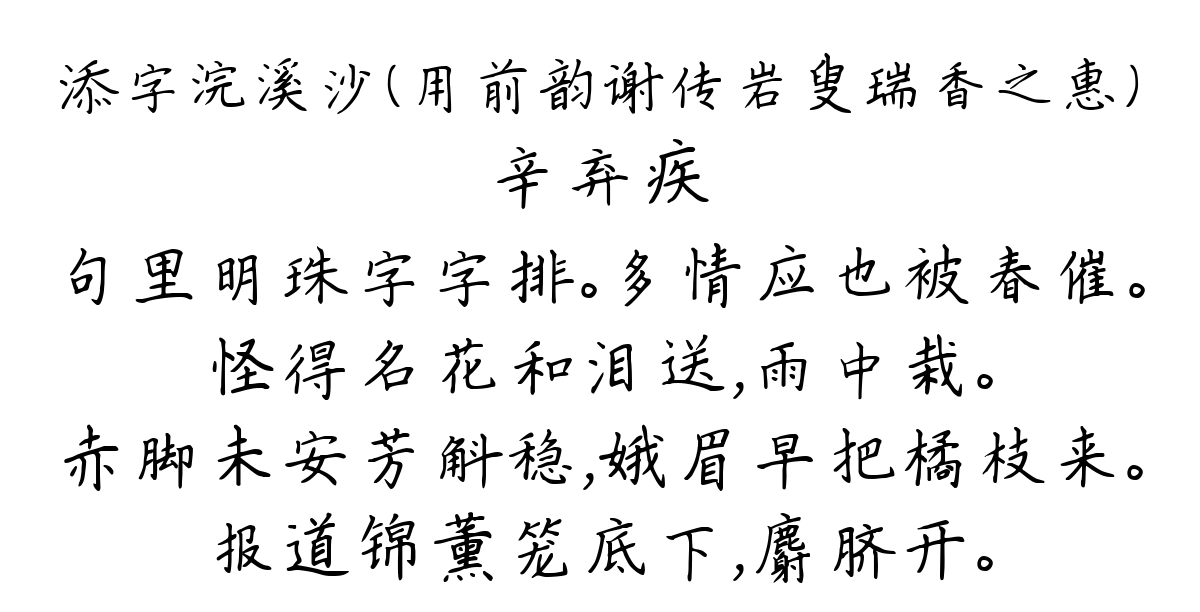 添字浣溪沙(用前韵谢传岩叟瑞香之惠)
辛弃疾
句里明珠字字排。多情应也被春催。
怪得名花和泪送,雨中栽。
赤脚未安芳斛稳,娥眉早把橘枝来。
报道锦薰笼底下,麝脐开。